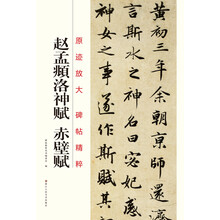 黄初三年余朝京师还济
言斯水之神名曰宓妃感
神女之事遂作斯赋其
原迹放大 碑帖精粹
赵孟頫洛神赋 赤壁赋